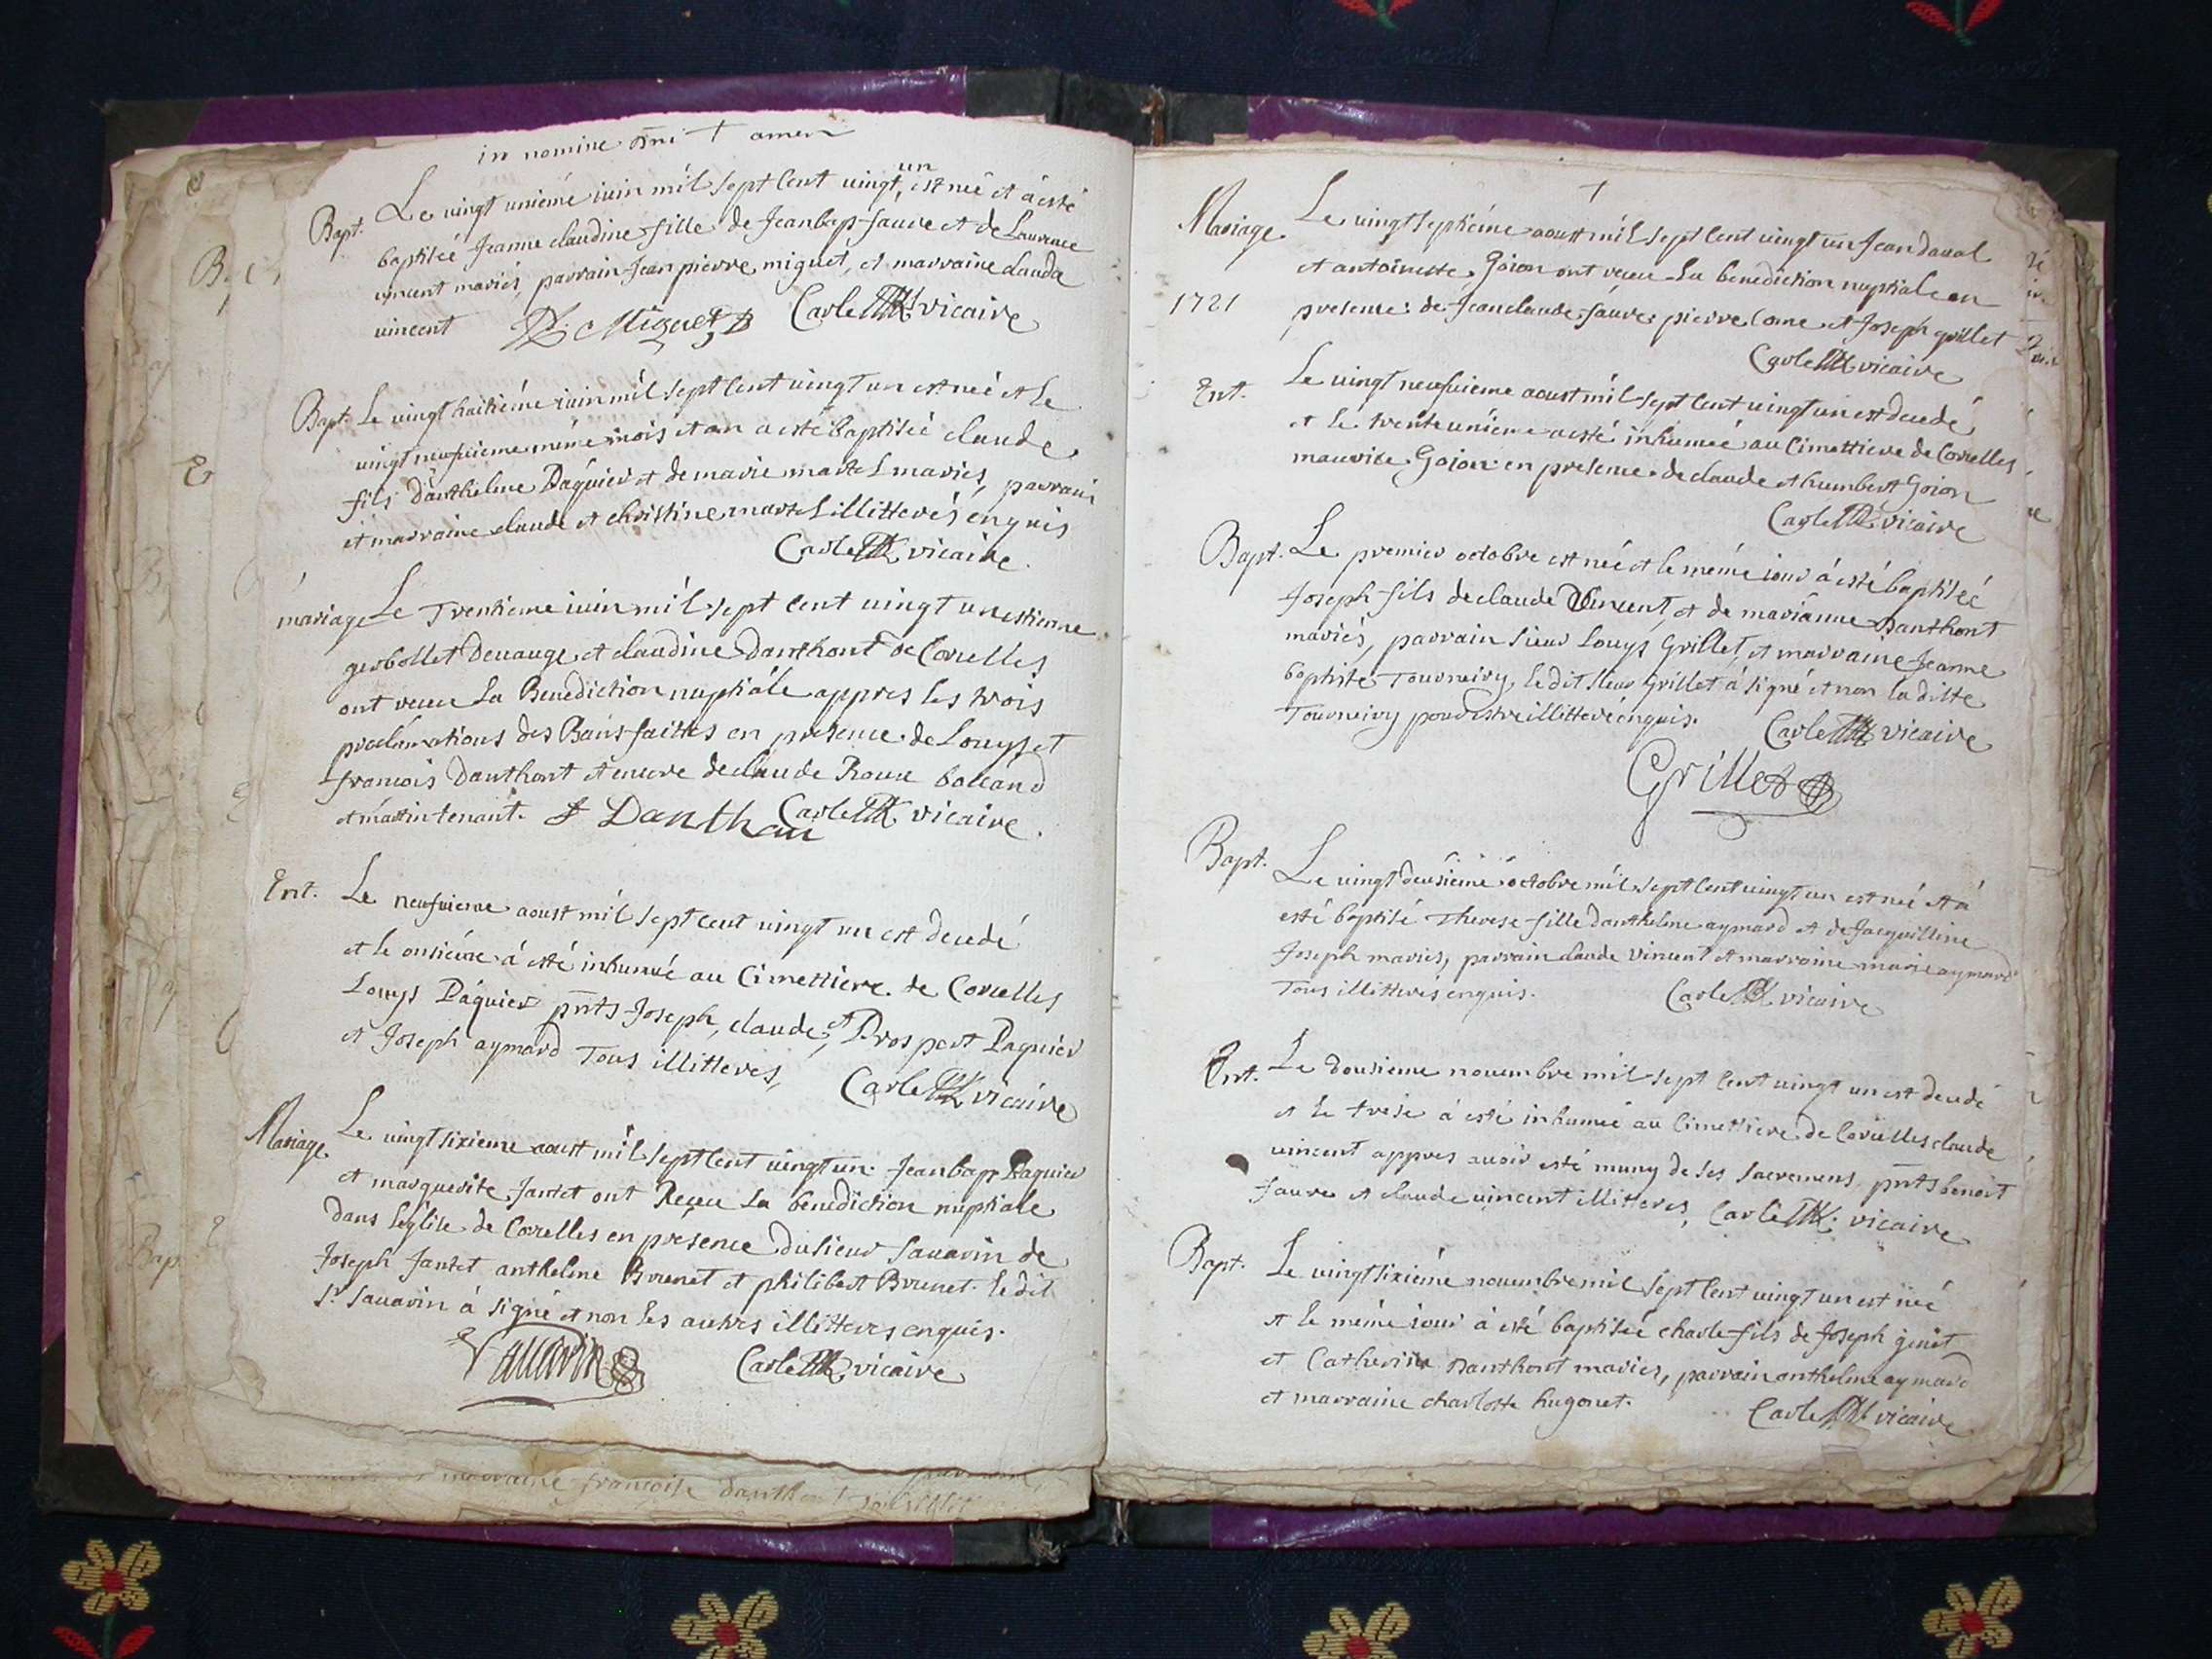 in nomine Dni + amen
Bapt. Le vingt unième iuin mil sept cent vingt, un est née et à esté
baptiseé Jeanne claudine fille de Jean bap. favre et de Laurence
vincent mariés, parrain Jean pierre miguet, et marraine clauda
vincent Miguet Carle vicaire
Bapt. Le vingt huitiéme iuin mil sept cent vingt un est neé et le
vingt neufvieme même mois et an a esté baptiseé claude
fils d'anthelme Dáguier et de marie martel mariés, parrain
et marraine claude et christine martel illitterés énquis
Carle vicaire.
máriage Le Trentieme iuin mil sept cent vingt un estienne
gerbollet Devauge et claudine Danthont de Corcelles
ont receu La Benediction nuptiále appres les trois
proclamations des Bans faittes en presence de Louys et
francois Danthont et encore de claude Roux bolland
et martin tenant. Danthon Carle vicaire.
Ent. Le neufvieme aoust mil sept cent vingt un est decedé
et le onsiéme á esté inhumé au Cimettiere de Corcelles
Louys Páguier pnts Joseph, claude, et Prospert Paguiér
et Joseph aymard Tous illitteres, Carle vicaire
Mariage Le vingt sixieme aoust mil sept cent vingt un. Jean bapt Paguier
et marguerite Jantet ont Reçeu La benediction nuptiale
dans L'eglise de Corcelles en présence du sieur Savarin de
Joseph Jantet anthelme Brunet et philibert Brunet. le dit
Sr. Savarin á signé et non les autres illitteres enquis.
Savarin Carle vicaire
marraine francoise danthont
+
Mariage Le vingt septiéme aoust mil sept cent vingt un Jean daval
et antoinette Goion ont receu La benediction nuptiale en
1721 presence de Jean claude favre pierre Come et Joseph grillet
Carle vicaire
Ent. Le vingt neufvieme aoust mil sept cent vingt un est decedé
et le trente unieme a esté inhumeé au Cimettiere de Corcelles
maurice Goion en presence de claude et humbert Goion
Carle vicaire
Bapt. Le premier octobre est née et le méme iour á esté baptiseé
Joseph fils de claude Vincent, et de marianne Danthont
mariés, parrain sieur Louys Grillet, et marraine Jeanne
baptiste Tourneiry, le dit sieur Grillet á signé et non la ditte
Tourneiry pour estre illitteré enquis. Carle vicaire
Grillet
Bapt. Le vingt deusiéme octobre mil sept cent vingt un est neé et á
esté baptisé Therese fille d'anthelme aymard et de Jacquilline
Joseph mariés, parrain claude vincent et marraine marie aymard
Tous illitterés enquis. Carle vicaire
Ent. Le dousieme novembre mil sept cent vingt un est decedé
et le trese á esté inhumeé au Cimettiere de Corcelles claude
vincent appres avoir esté muny de ses sacremens pnts benoit
favre et claude vincent illitteres, Carle vicaire
Bapt. Le vingt sixiéme novembre mil sept cent vingt un est neé
et le méme iour à esté baptiseé charle fils de Joseph genet
et Catherine Danthont mariés, parrain anthelme aymard
et marraine charlotte hugonet. Carle vicaire